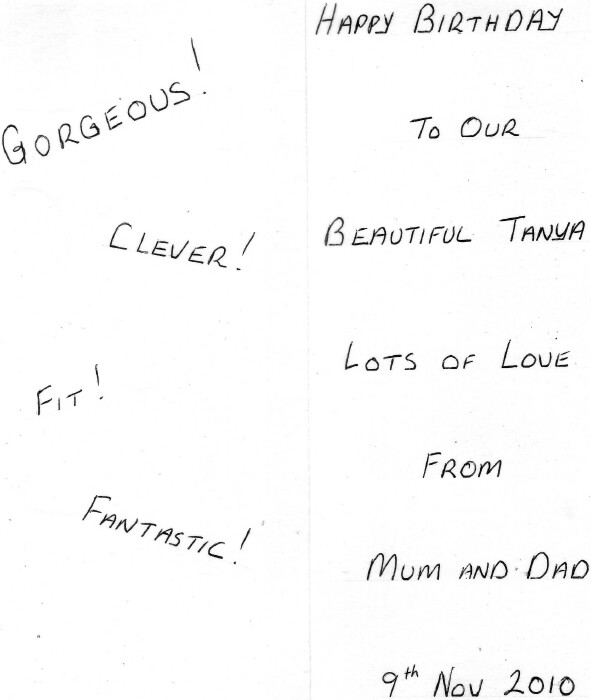 GORGEOUS!
CLEVER!
FIT!
FANTASTIC!
HAPPY BIRTHDAY
TO OUR
BEAUTIFUL TANYA
LOTS OF LOVE
FROM
MUM AND DAD
9th NOV 2010